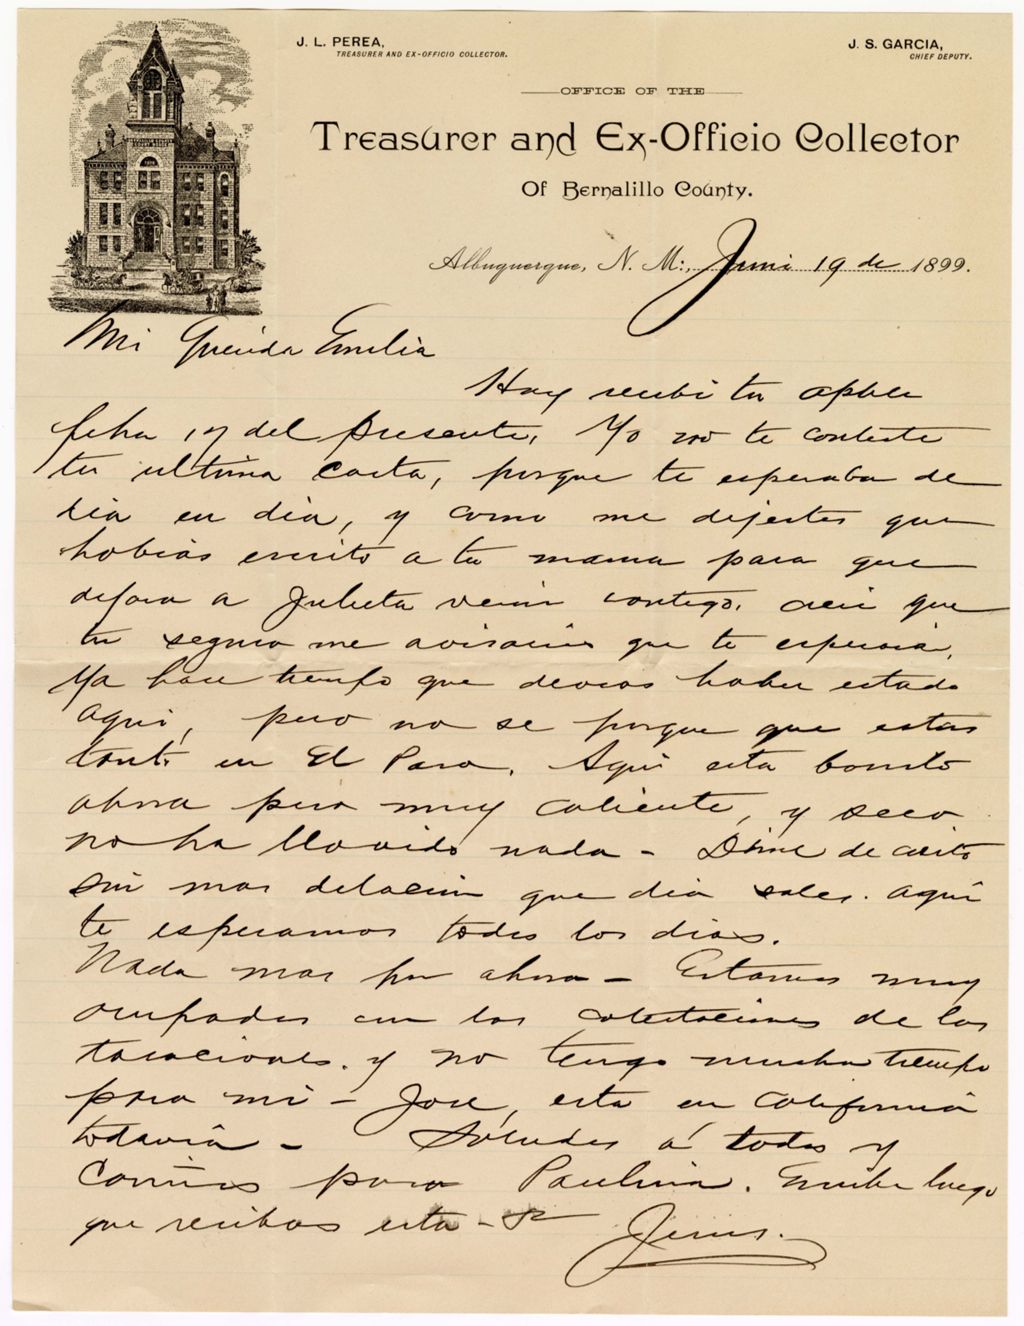 J. L. PEREA,
TREASURER AND EX-OFFICIO COLLECTOR.
J. S. GARCIA,
CHIEF DEPUTY.
OFFICE OF THE
Treasurer and Ex-Officio Collector
Of Bernalillo County.
Albuquerque, N. M., Juni 19 de 1899.
Mi Querida Emilia
Hoy recibi tu
fcha 17 del presente. Yo no te conteste
tu ultima carta, porque te esperaba de
dia en dia, y como me dijestes que
habias escrito a tu mama para que
dejara a Julieta venir contigo. crei que
tu seguro me avisarias que te esperara.
Ya hace tiempo que devias haber estado
aqui, pero no se porque que estas
tanto en El Paso. Aqui esta bonito
ahora pero muy caliente, y seco
no ha llovido nada - Dime de cierto
sin mas delacion que dia sales. aqui
te esperamos todos los dias.
Nada mas por ahora - Estamos muy
ocupados con las de las
tasaciones. y no tengo mucho tiempo
para mi - Jose, esta en California
todavia - Saludes á todos y
Cariños para Paulina. Escribe luego
que recibas esta -
Jesus.